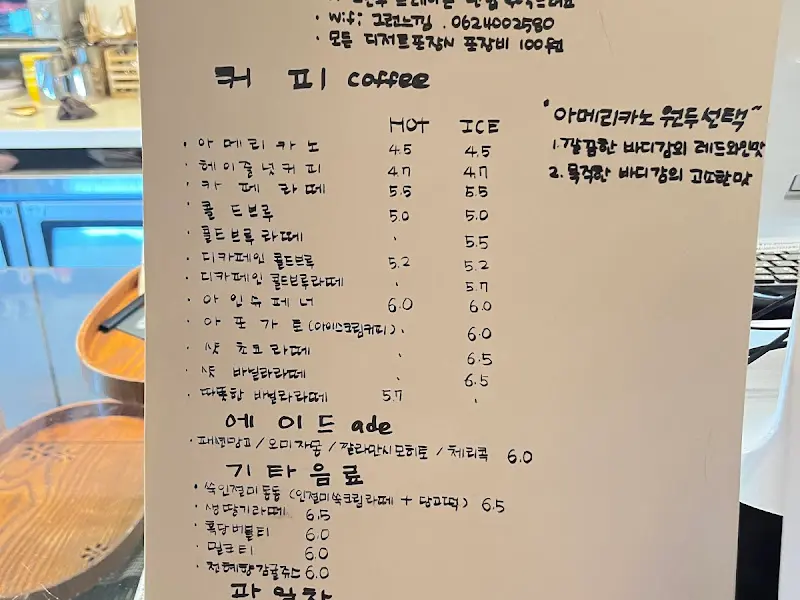 · Wifi: 그런느낌. 0624002580
· 모든 디저트포장시 포장비 100원
커 피 coffee
HOT ICE
· 아메리카노 4.5 4.5
· 헤이즐넛커피 4.7 4.7
· 카페라떼 5.5 5.5
· 콜드브루 5.0 5.0
· 콜드브루라떼 · 5.5
· 디카페인 콜드브루 5.2 5.2
· 디카페인 콜드브루라떼 · 5.7
· 아인슈페너 6.0 6.0
· 아포가토(아이스크림커피) · 6.0
· 샷 초코라떼 · 6.5
· 샷 바닐라라떼 · 6.5
· 따뜻한 바닐라라떼 5.7 ·
"아메리카노 원두선택"
1. 깔끔한 바디감의 레드와인맛
2. 묵직한 바디감의 고소한맛
에이드 ade
· 패션망고 / 오미자몽 / 깔라만시모히토 / 체리콕 6.0
기타음료
· 쑥인절미둥둥 (인절미쑥크림라떼 + 당고떡) 6.5
· 생딸기라떼 6.5
· 흑당버블티 6.0
· 밀크티 6.0
· 천혜향감귤쥬스 6.0
과일차